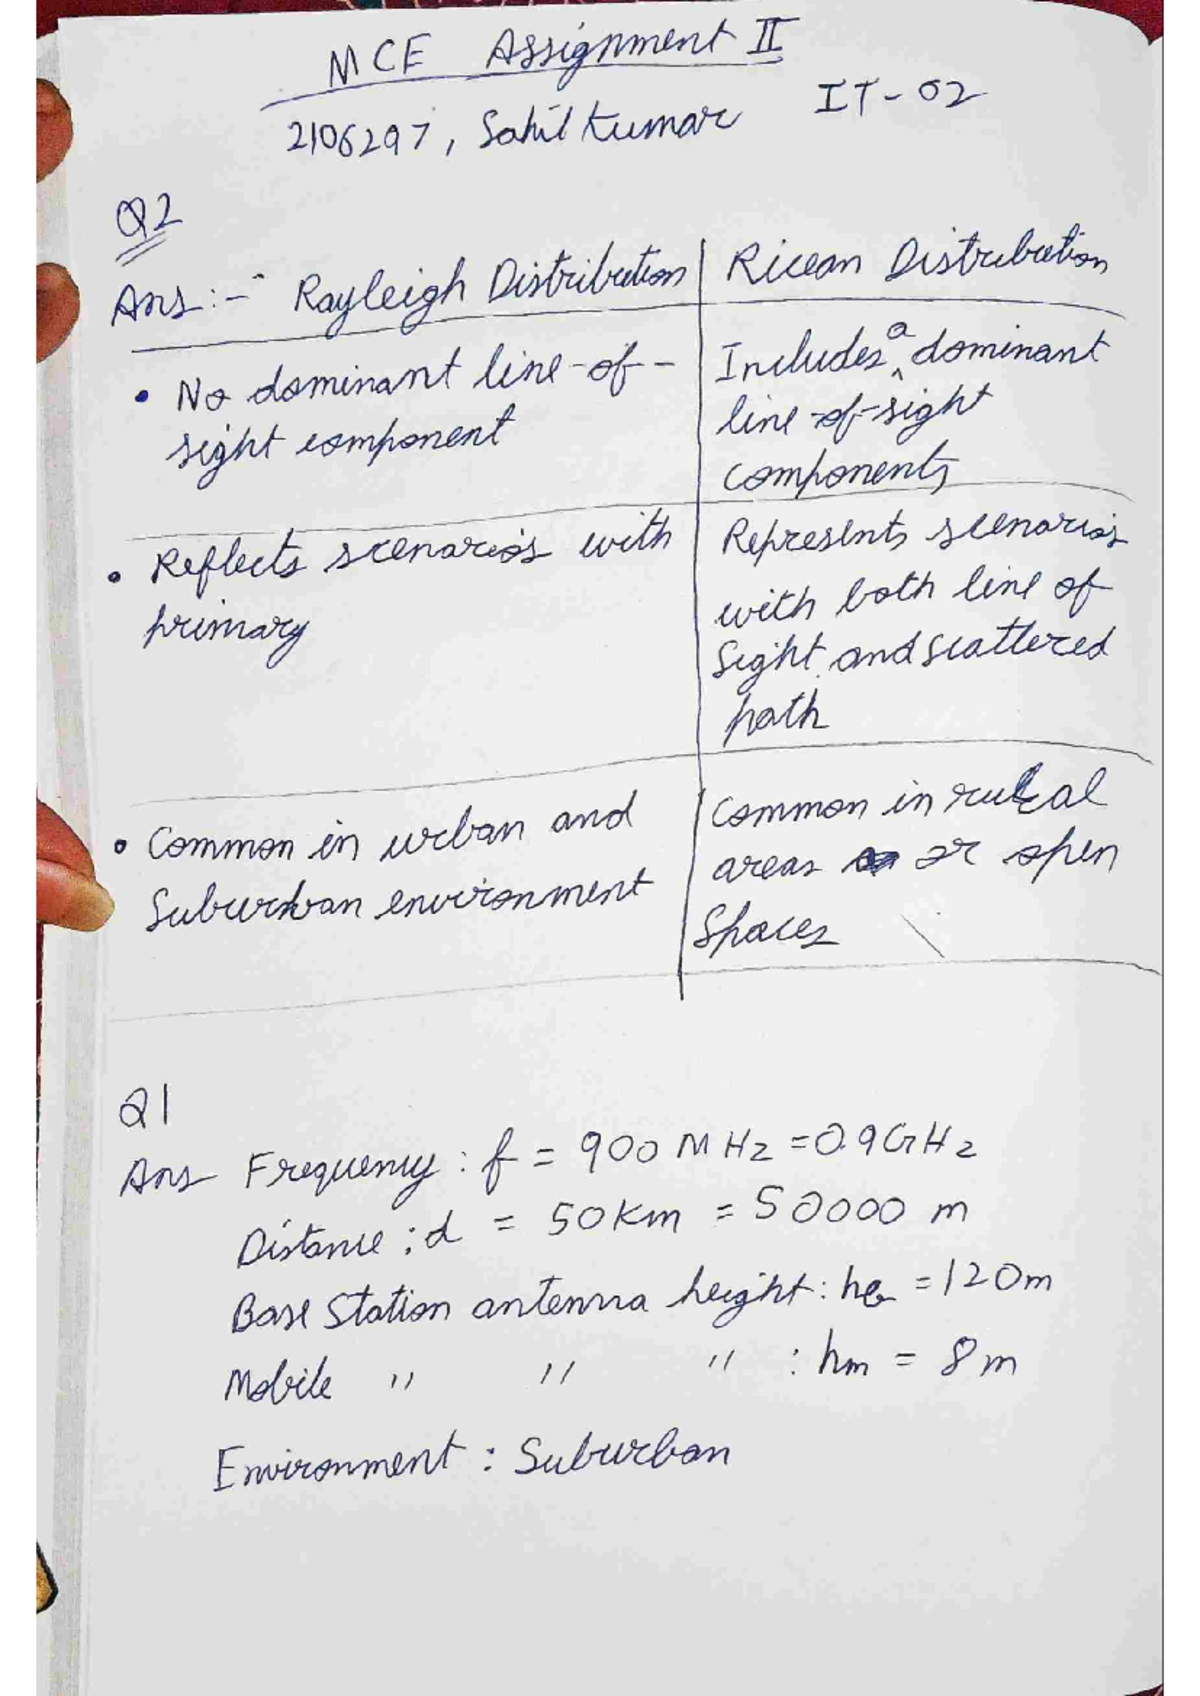 MCE Assignment II
2106297, Sahil Kumar IT-02
Q2
Ans :- Rayleigh Distribution | Ricean Distribution
• No dominant line-of-
sight component
Includes a dominant
line-of-sight
components
• Reflects scenarios with
primary
Represents scenarios
with both line of
sight and scattered
path
• Common in urban and
Suburban environment
Common in rural
areas or open
Spaces
Q1
Ans Frequency : f = 900 MHz = 0.9GHz
Distance : d = 50Km = 50000 m
Base Station antenna height : hb = 120m
Mobile " " " : hm = 8m
Environment : Suburban